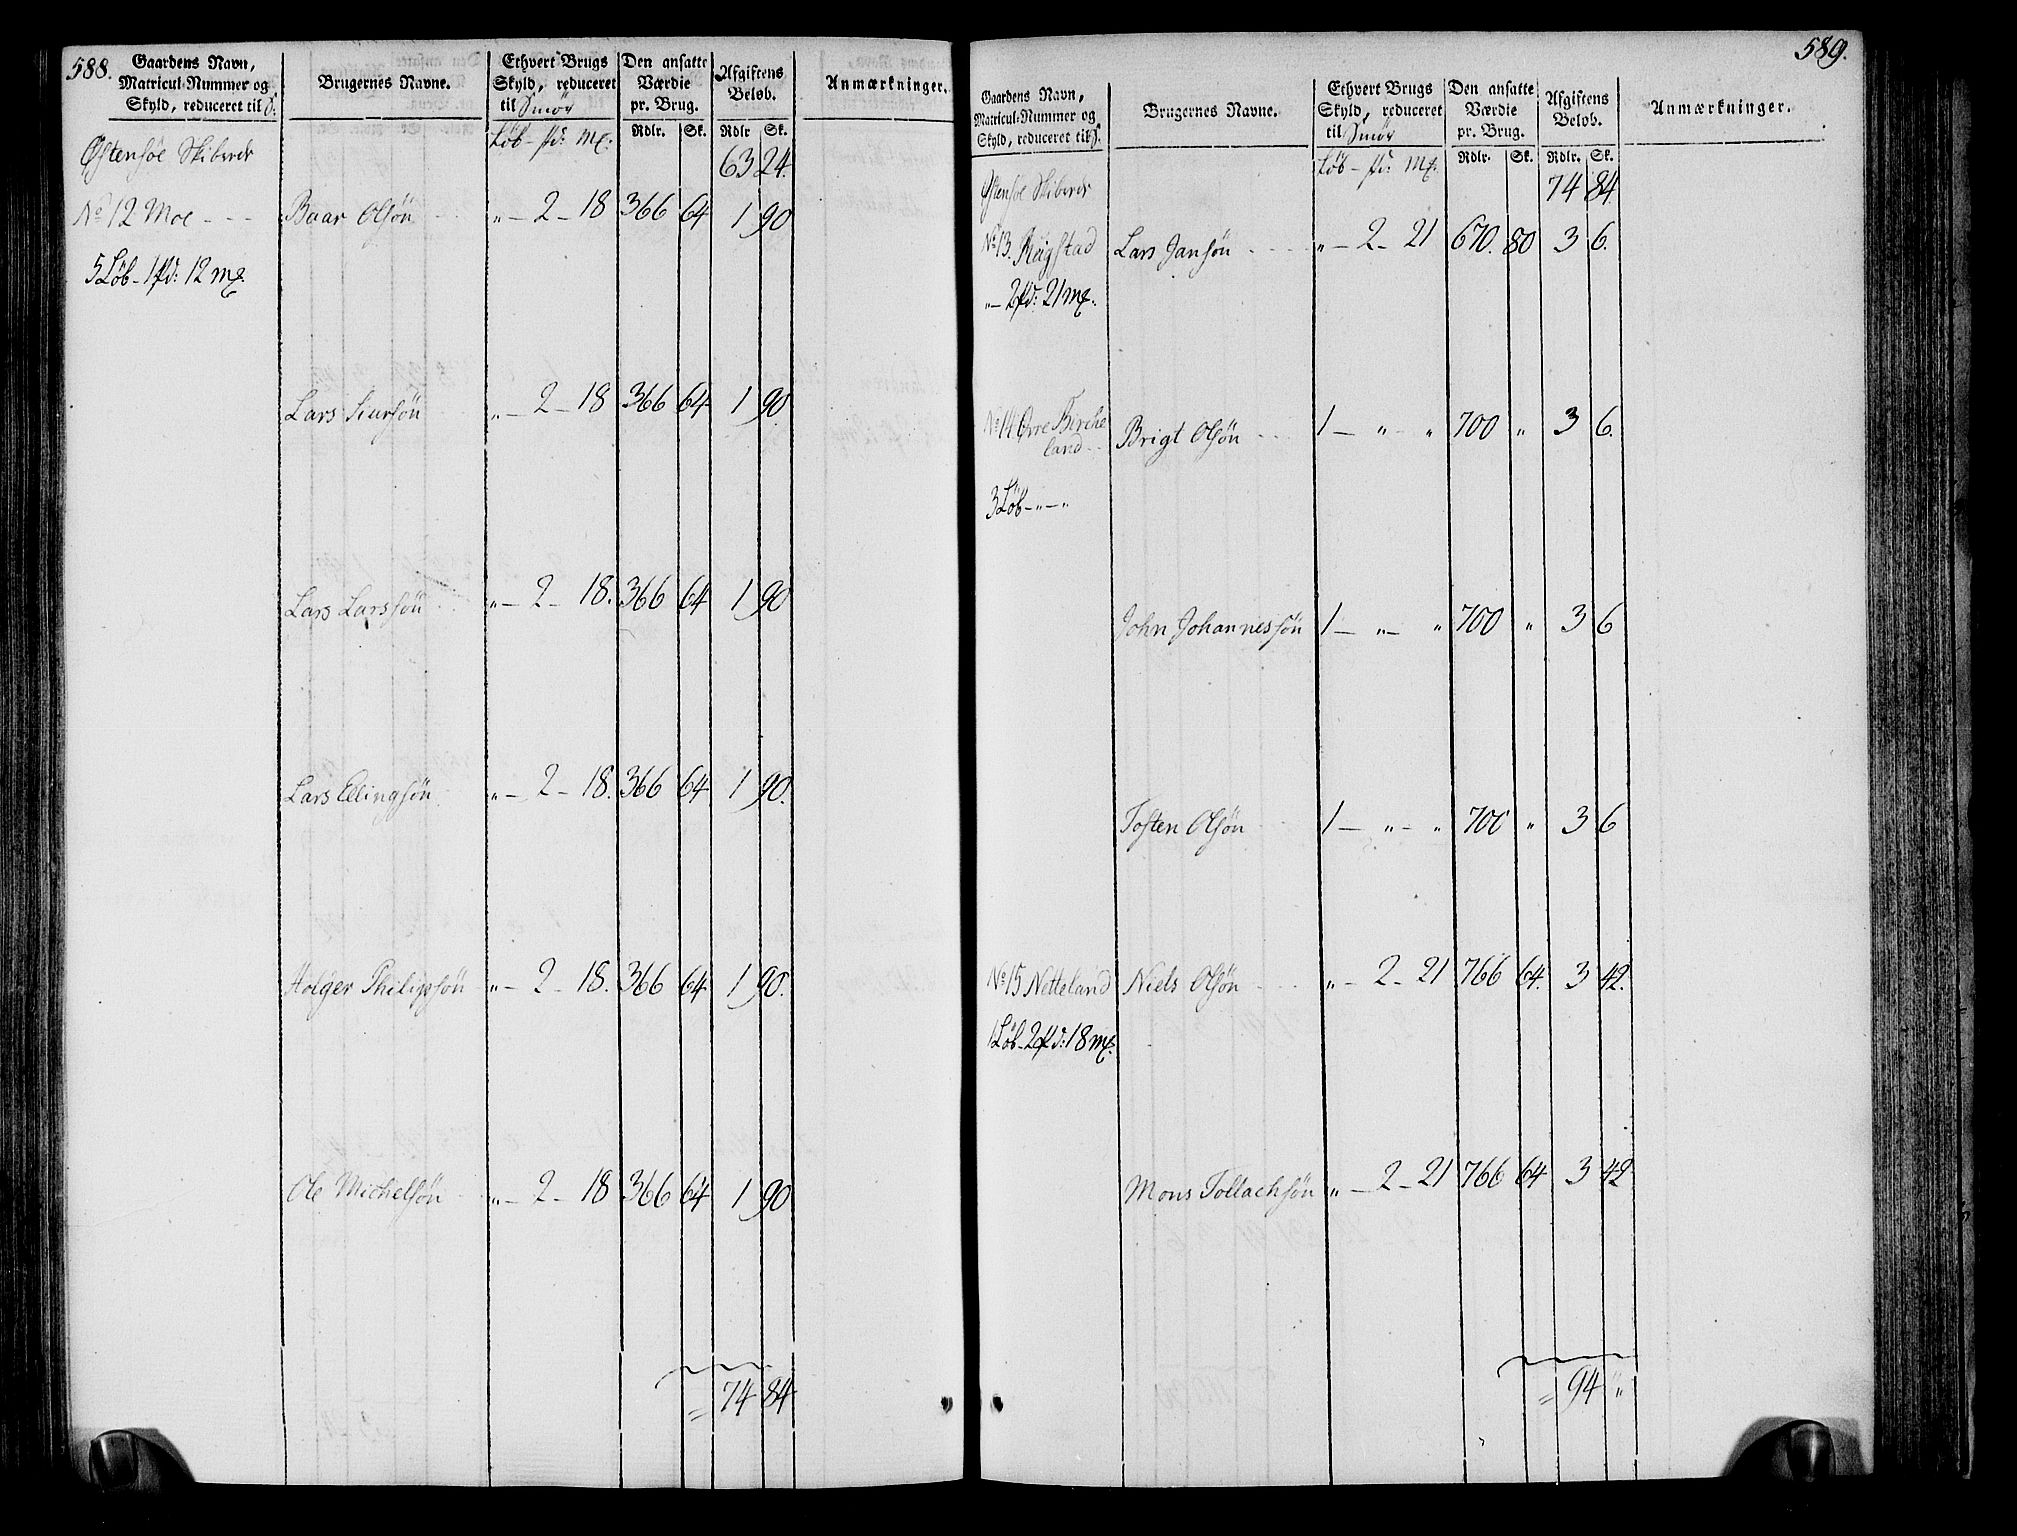 588.
Gaardens Navn, Matricul-Nummer og Skyld, reduceret til S: | Brugernes Navne. | Ethvert Brugs Skyld, reduceret til Smör | Den ansatte Værdie pr. Brug. | Afgiftens Beløb. | Anmærkninger.
Løb - pd: mg. | Rdlr. | Sk. | Rdlr | Sk.
Østensøe Skibrede 63 24.
No 12 Moe - - - Baar Olsøn " - 2 - 18 366 64 1 90
5 Løb - 1 pd: 12 mg.
Lars Siursøn " - 2 - 18 366 64 1 90.
Lars Larssøn " - 2 - 18. 366 64 1 90
Lars Ellingsøn " - 2 - 18. 366 64 1 90.
Holger Philipsøn " - 2 - 18. 366 64 1 90.
Ole Michelsøn " - 2 - 18 366 64 1 90
= 74 84
589.
Gaardens Navn, Matricul-Nummer og Skyld, reduceret til S. | Brugernes Navne. | Ethvert Brugs Skyld, reduceret til Smör | Den ansatte Værdie pr. Brug. | Afgiftens Beløb. | Anmærkninger.
Løb - pd: mg. | Rdlr. | Sk. | Rdlr. | Sk.
Østensøe Skibrede 74 84
No 13. Røgstad Lars Jansøn " - 2 - 21 670. 80 3 6.
" - 2 pd: 21 mg.
No 14 Øvre Birche
land Brigt Olsøn 1 - " - " 700 " 3 6.
3 Løb - " - "
John Johannessøn 1 - " - " 700 " 3 6
Tosten Olsøn 1 - " - " 700 " 3 6
No 15 Netteland Niels Olsøn " - 2 - 21 766 64. 3 42.
1 Løb - 2 pd: 18 mg.
Mons Tollachsøn " - 2 - 21 766 64 3 42
= 94 "